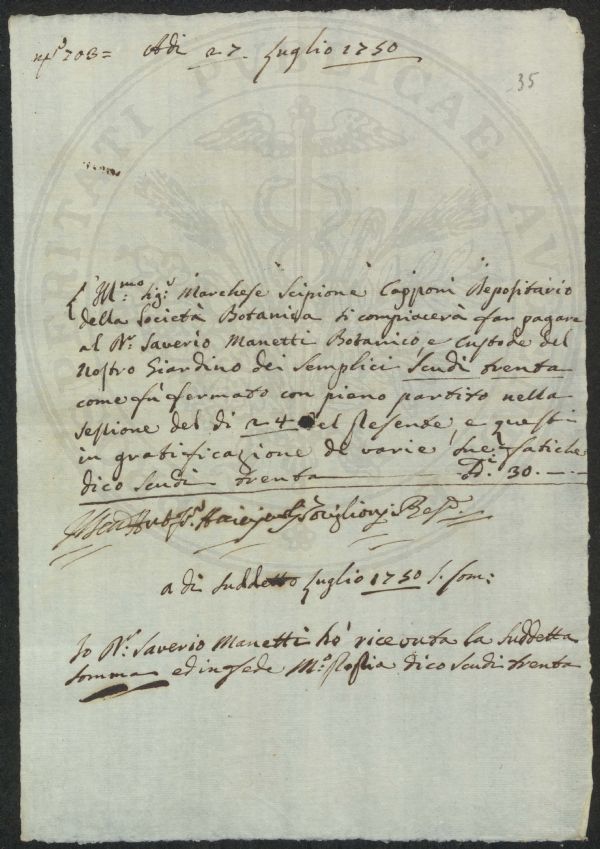 Adì 27 Luglio 1750
35
PERITATI PUBLICAE
Ill:mo Sig:r Marchese Scipione Capponi Depositario
della Società Botanica si compiacerà far pagare
al D:r Saverio Manetti Botanico, e Custode del
Nostro Giardino dei Semplici Scudi trenta
come fù fermato con pieno partito nella
sessione del dì 24 del Presente, e questi
in gratificazione de varie sue fatiche
dico Scudi trenta 30.
a dì Suddetto Luglio 1750 S. Som:
Io D:r Saverio Manetti hò ricevuta la Suddetta
Somma ed in fede M:o Propria dico Scudi trenta